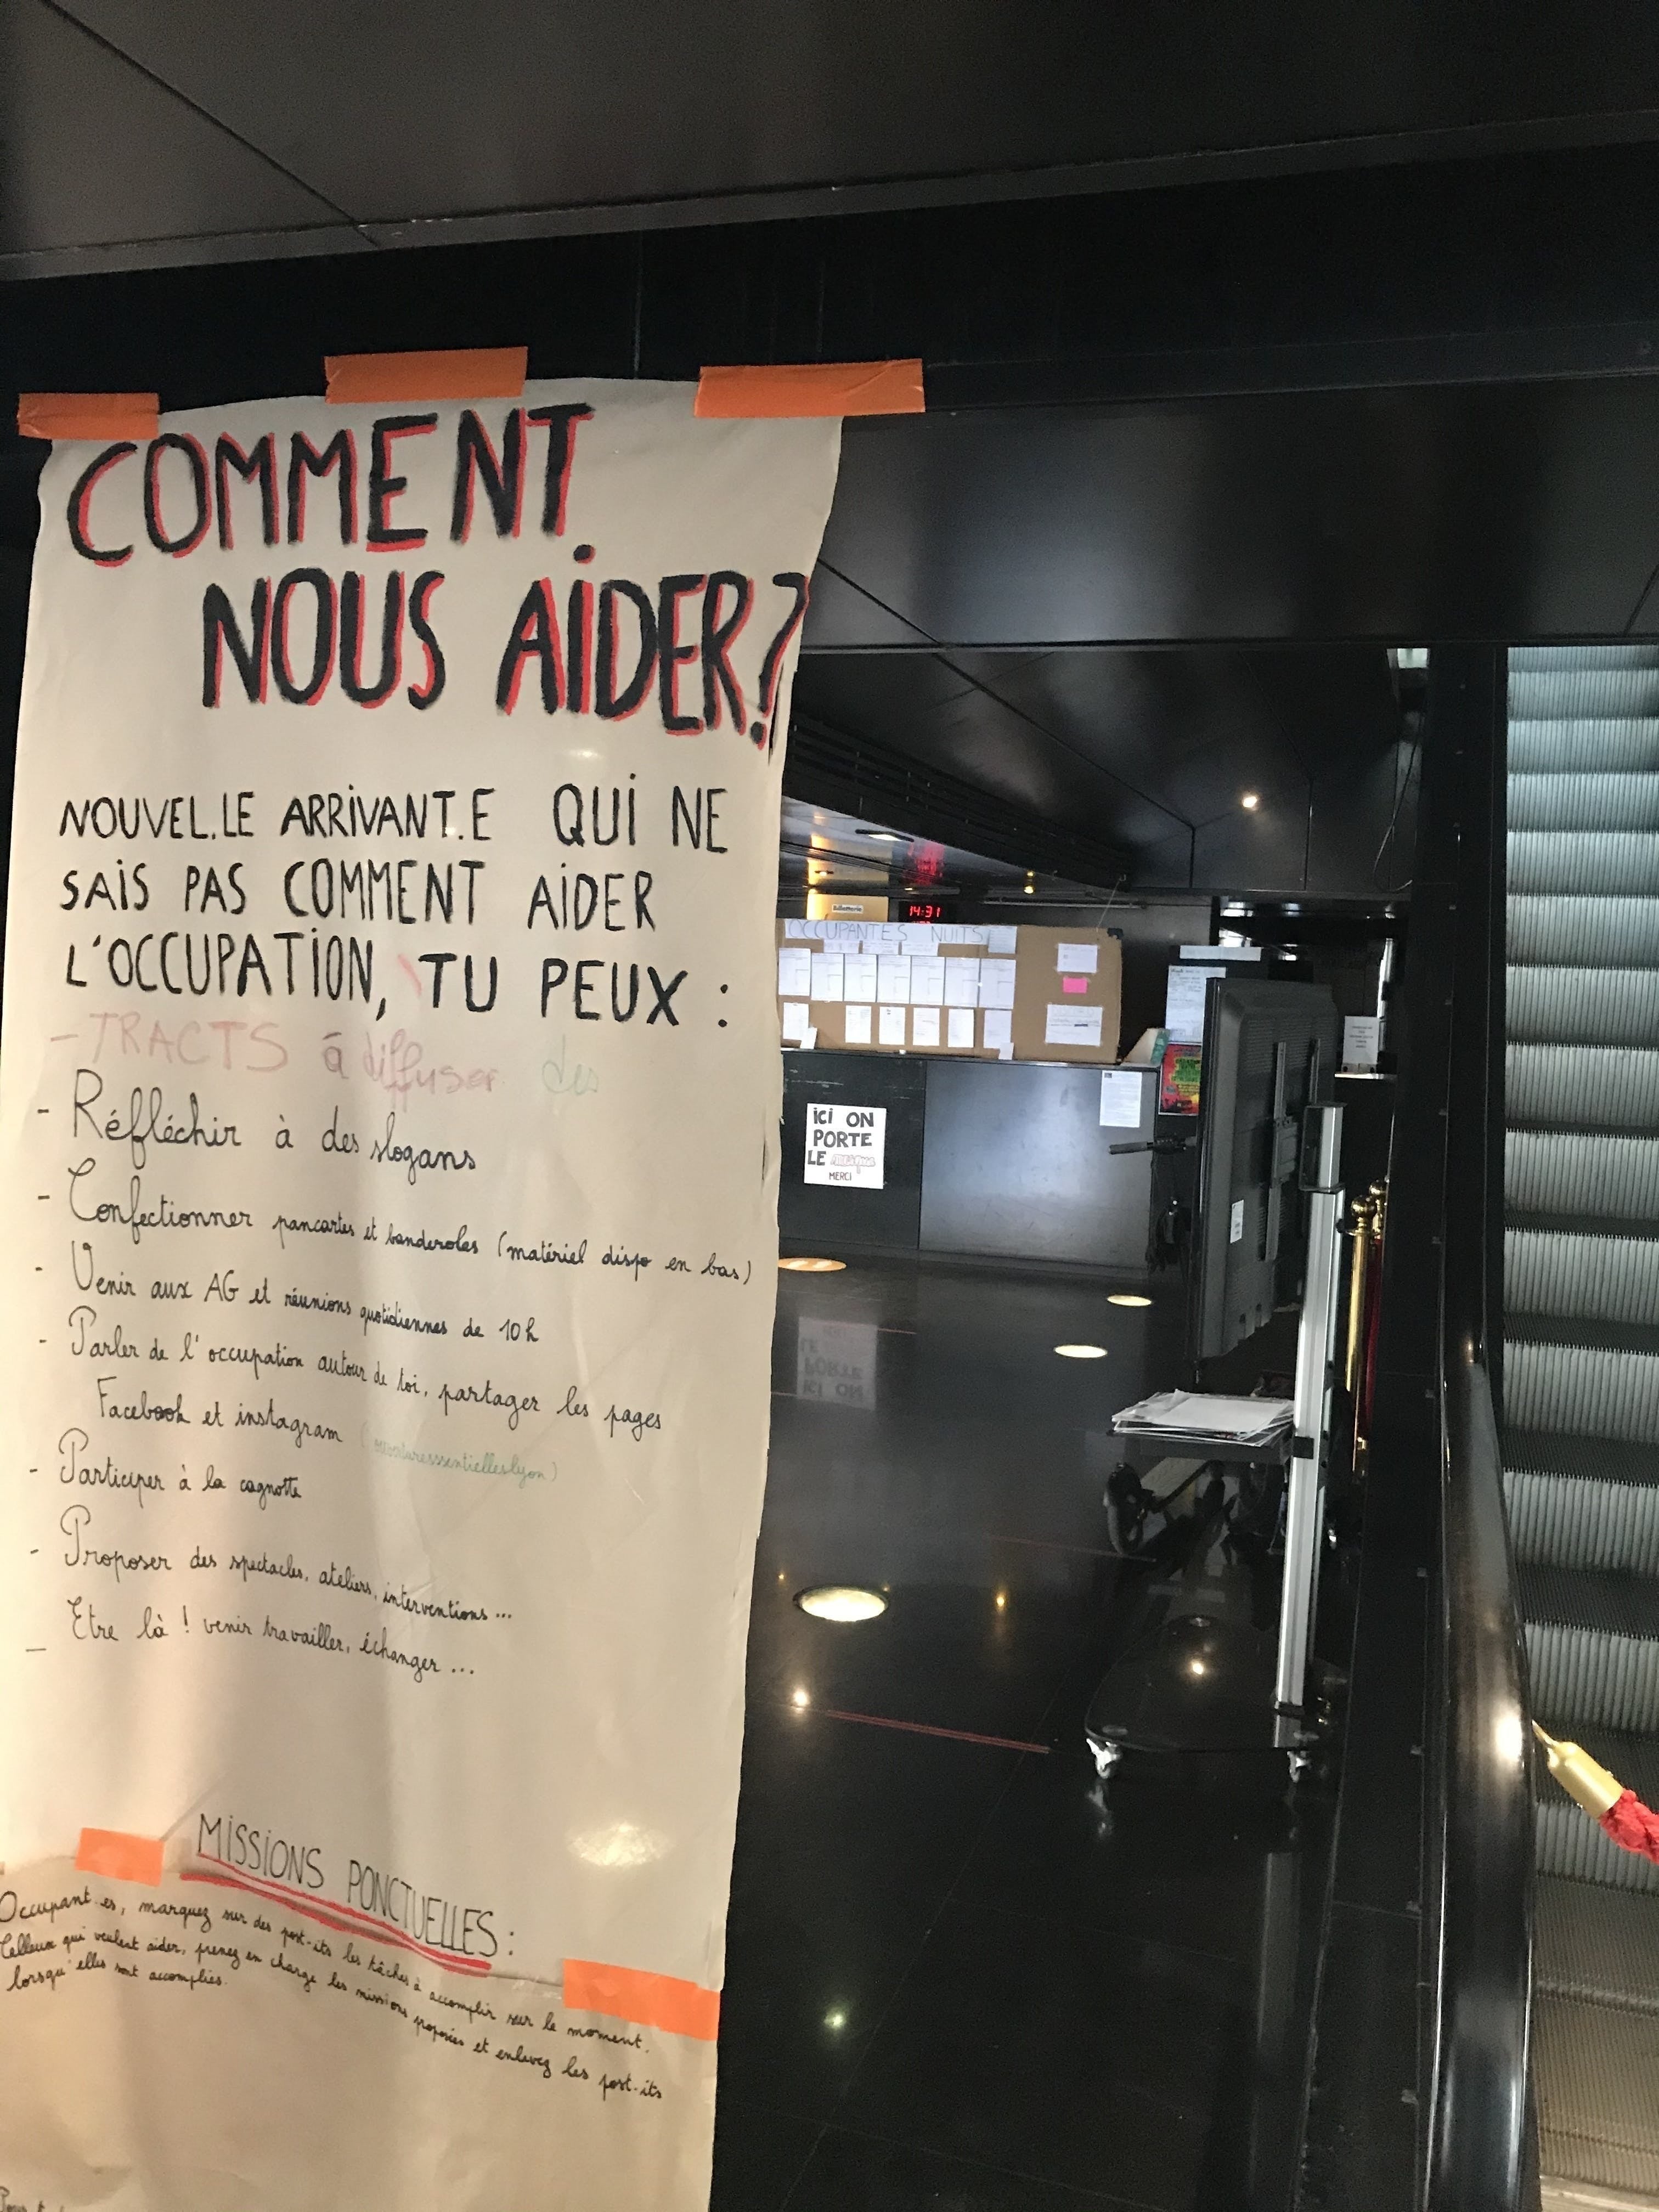 COMMENT
NOUS AiDER?
NOUVEL.LE ARRiVANT.E QUi NE
SAiS PAS COMMENT AiDER
L'OCCUPATiON, TU PEUX :
- TRACTS à diffuser des
- Réfléchir à des slogans
- Confectionner pancartes et banderoles (matériel dispo en bas)
- Venir aux AG et réunions quotidiennes de 10h
- Parler de l'occupation autour de toi, partager les pages
Facebook et instagram
- Participer à la cagnotte
- Proposer des spectacles, ateliers, interventions...
- Etre là ! venir travailler, échanger ...
MiSSiONS PONCTUELLES :
Occupant.es, marquez sur des post-its les tâches à accomplir sur le moment.
Celleux qui veulent aider, prenez en charge les missions proposées et enlevez les post-its
lorsqu'elles sont accomplies.
Billetterie
14:31
OCCUPANTES NUITS
iCi ON
PORTE
LE masque
MERCi